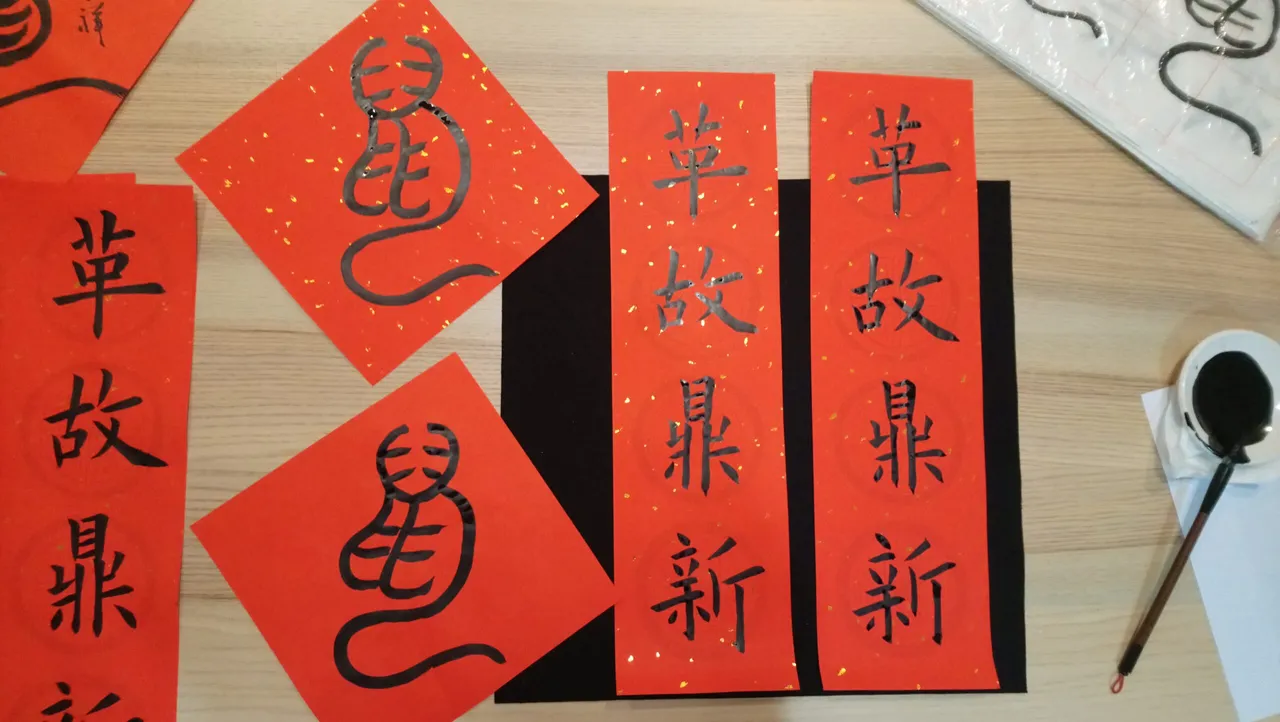 祥
革故鼎新
鼠
鼠
革故鼎新
革故鼎新